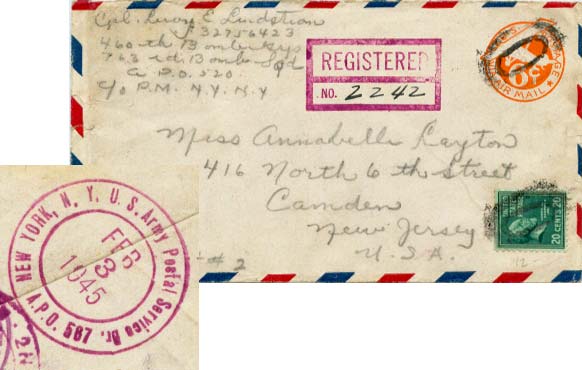 Cpl. Leroy E. Lindstrom
32756423
460-th Bomber Grp
763 rd. Bomb Sqd
A.P.O. 520
c/o P.M. N.Y. N.Y
REGISTERED
NO. 2242
AIR MAIL
Miss Annabelle Layton
416 North 6 th Street
Camden
New Jersey
U.S.A.
# 2
UNITED STATES
20 CENTS 20
NEW YORK, N.Y. U.S. Army Postal Service Br.
A.P.O. 587
FEB
3
1945